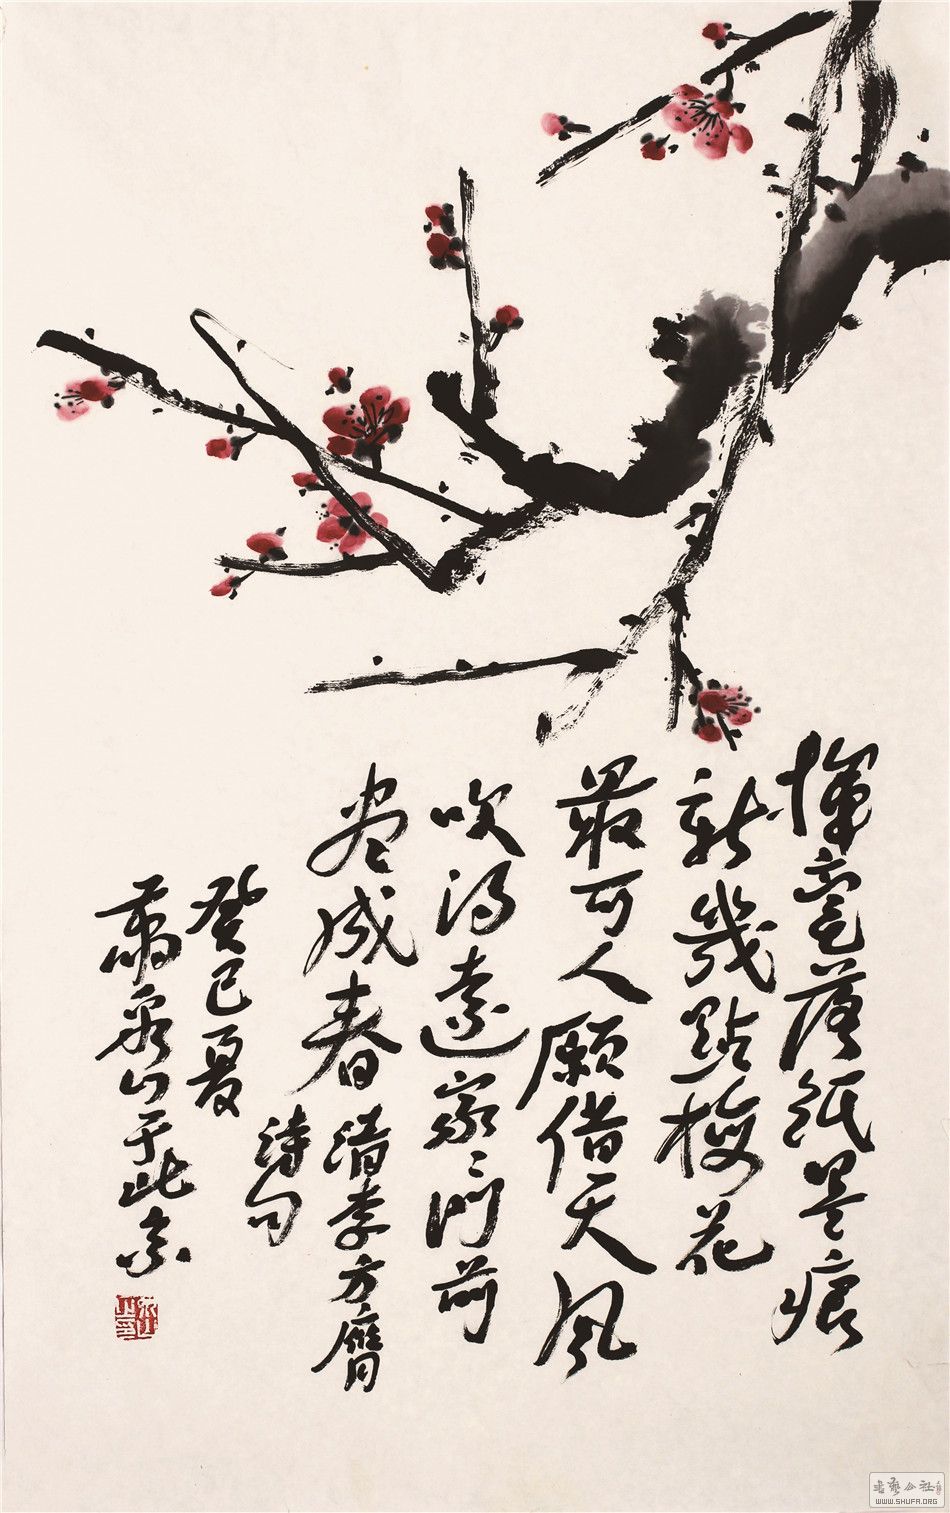 挥毫落纸墨痕
新几點梅花
最可人願借天風
吹得遠家々門前
尽成春清李方膺
詩句
癸巳夏
萧永山于北京
書藝公社
WWW.SHUFA.ORG